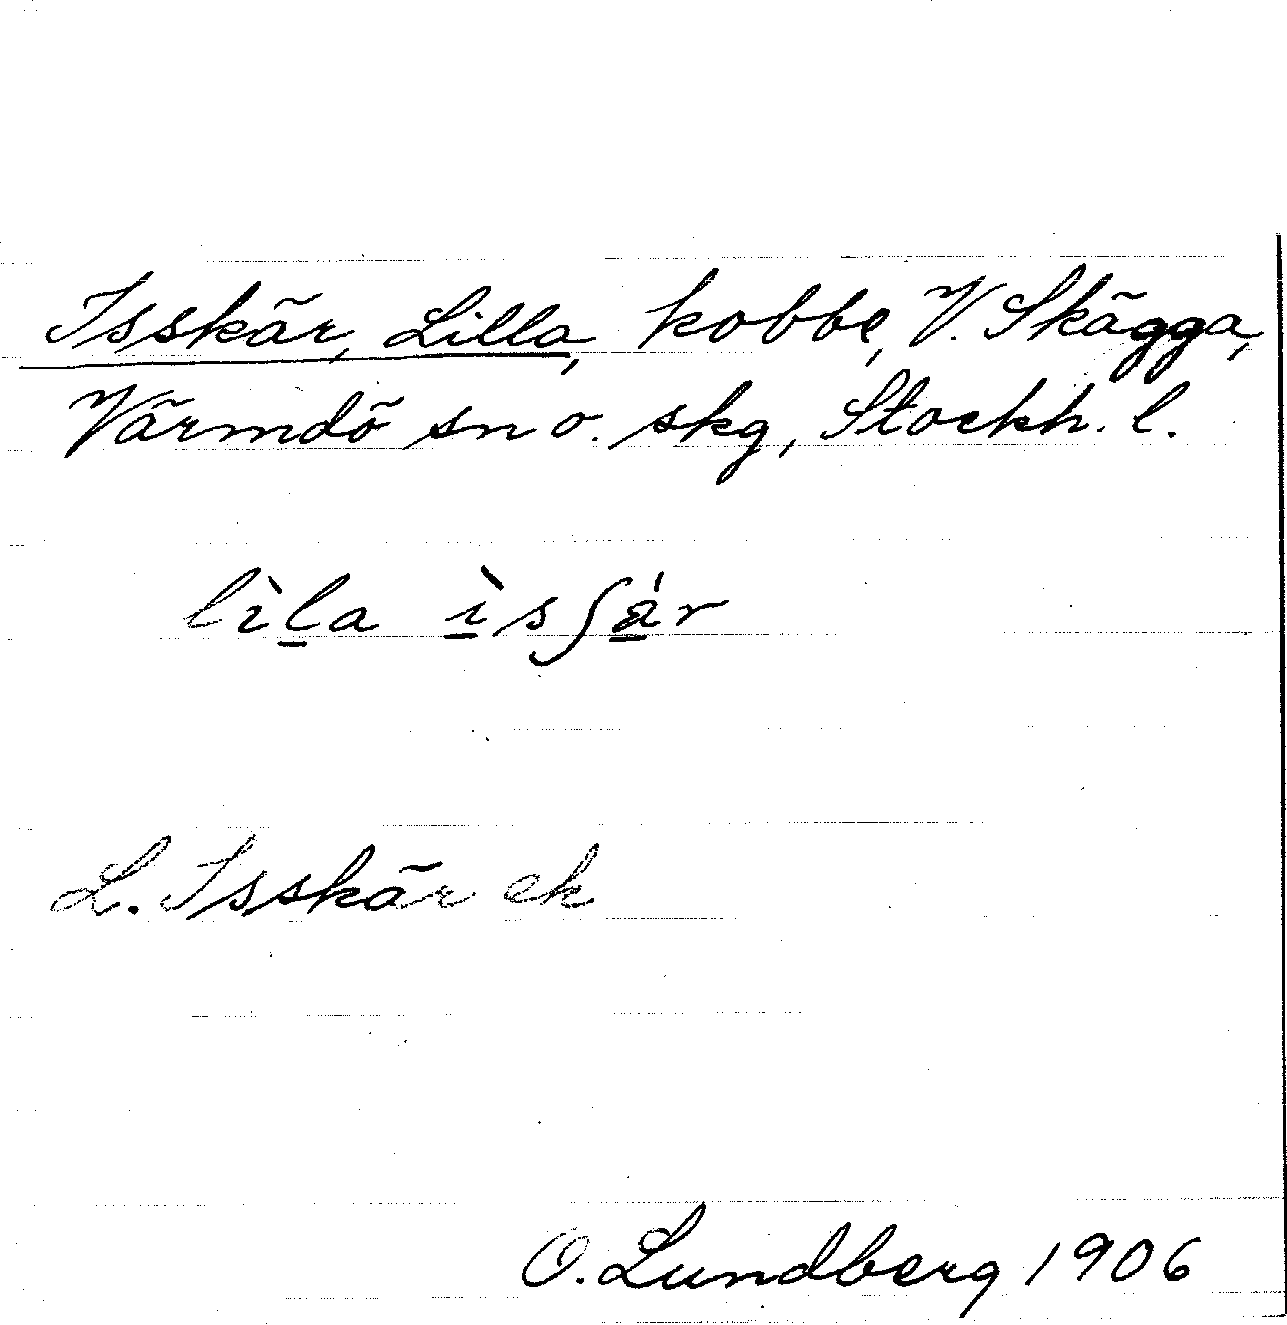 Isskär, Lilla, kobbe, V. Skägga,
Värmdö sn o. skg, Stockh. l.
lìl̠a ì̠sʃä̠́r
L. Isskär ek
O. Lundberg 1906